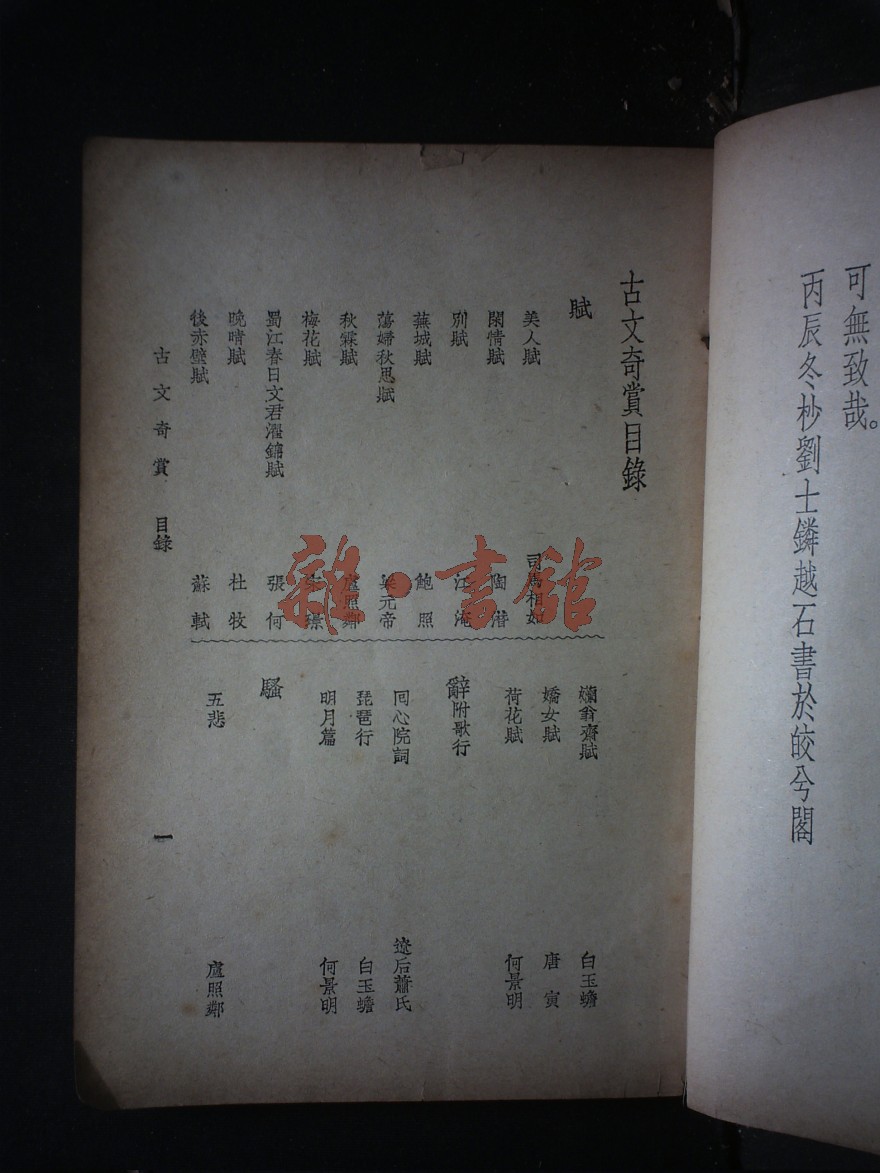 可無致哉。
丙辰冬杪劉士鏻越石書於皎兮閣
古文奇賞目錄
賦
美人賦 司馬相如
閑情賦 陶潛
別賦 江淹
蕪城賦 鮑照
蕩婦秋思賦 梁元帝
秋霖賦 盧照鄰
梅花賦 宋璟
蜀江春日文君濯錦賦 張何
晚晴賦 杜牧
後赤壁賦 蘇軾
嬾翁齋賦 白玉蟾
嬌女賦 唐寅
荷花賦 何景明
辭附歌行
回心院詞 遼后蕭氏
琵琶行 白玉蟾
明月篇 何景明
騷
五悲 盧照鄰
古文奇賞 目錄 一
雜·書館